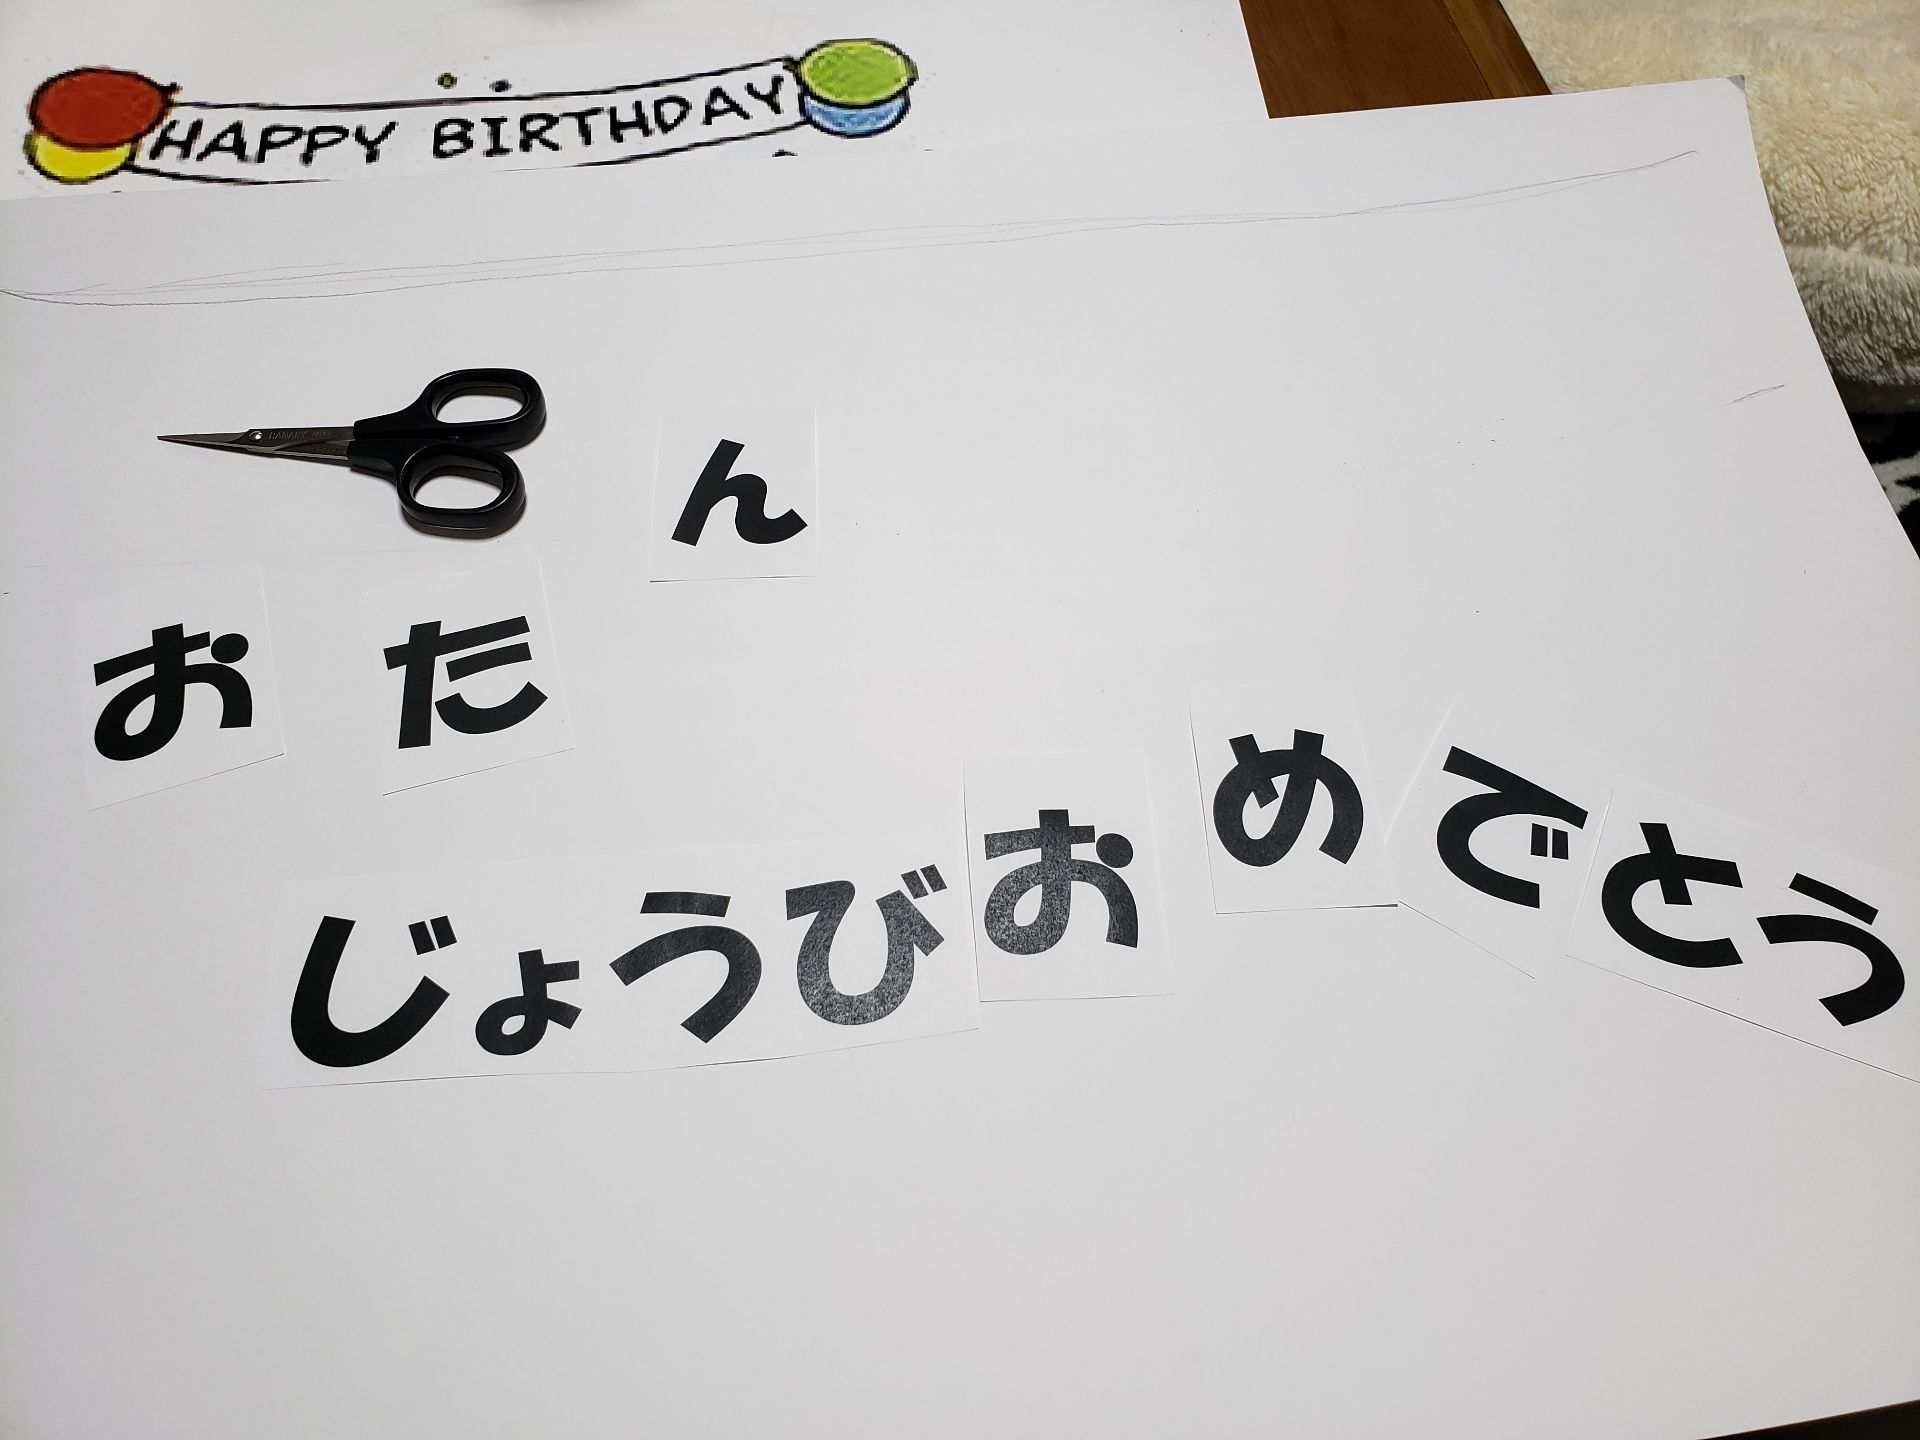 HAPPY BIRTHDAY
おたん
じょうびおめでとう